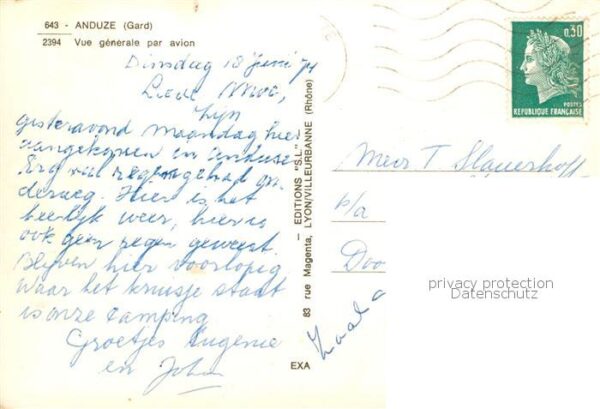 643 - ANDUZE (Gard)
2394 Vue générale par avion
Dinsdag 18 juni 74
Lieve Moe,
Zijn
gisteravond maandag hier
aangekomen in Anduse
Erg veel regen gehad on
derweg. Hier is het
heerlijk weer, hier is
ook geen regen geweest.
Blijven hier voorlopig
Waar het kruisje staat
is onze camping
Groetjes Eugenie
en John
EXA
— EDITIONS "S.L." —
83 rue Magenta, LYON/VILLEURBANNE (Rhône)
0,30
POSTES
REPUBLIQUE FRANÇAISE
Meer T Slauerhoff
p/a
Doo
privacy protection
Datenschutz